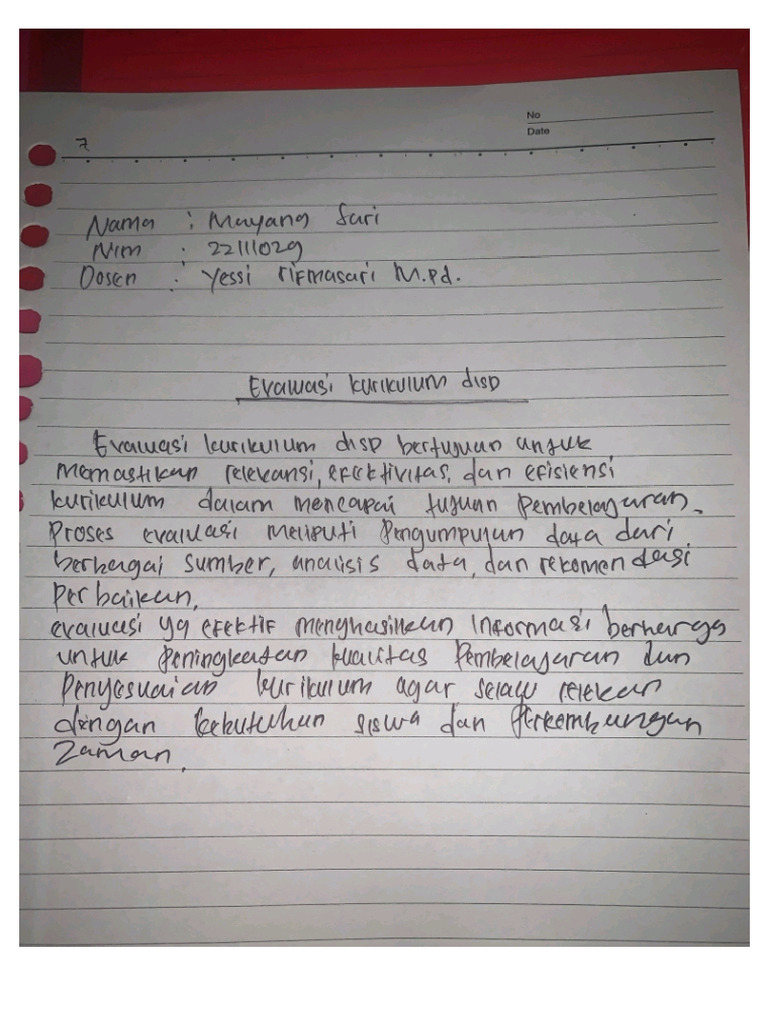 No
Date
7
Nama : Mayang Sari
Nim : 22111029
Dosen : Yessi rifmasari M.Pd.
Evaluasi kurikulum disD
Evaluasi kurikulum disD bertujuan untuk
memastikan relevansi, efektivitas, dan efisiensi
kurikulum dalam mencapai tujuan Pembelajaran.
Proses evaluasi meliputi Pengumpulan data dari
berbagai sumber, analisis data, dan rekomendasi
Perbaikan,
evaluasi yg efektif menghasilkan Informasi berharga
untuk Peningkatan kualitas Pembelajaran dan
Penyesuaian kurikulum agar selalu relekan
dengan kebutuhan siswa dan Perkembangan
Zaman.